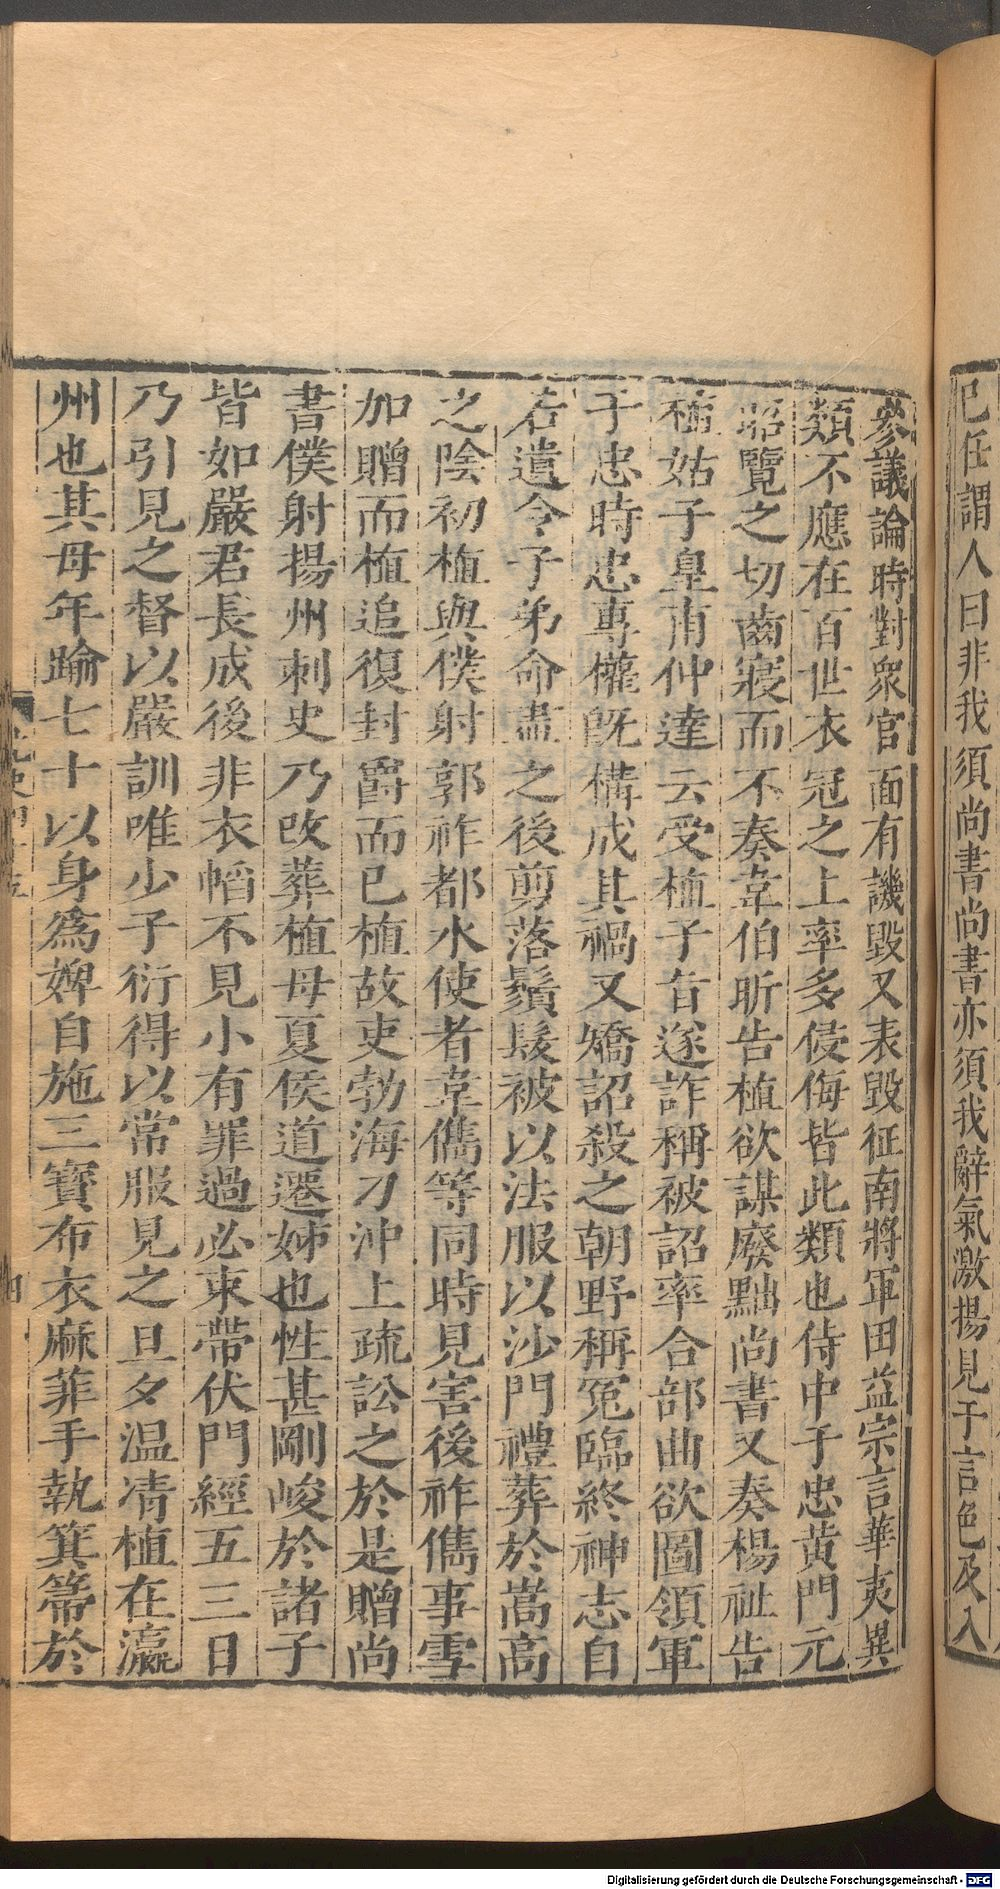 己任謂人曰非我須尚書尚書亦須我辭氣激揚見于言色及入
參議論時對衆官面有譏毀又表毀征南將軍田益宗言華夷異
類不應在百世衣冠之上率多侵侮皆此類也侍中于忠黃門元
昭覽之切齒寢而不奏韋伯昕告植欲謀廢黜尚書又奏楊祉告
植姑子皇甫仲達云受植子旨遂詐稱被詔率合部曲欲圖領軍
于忠時忠專權旣構成其禍又矯詔殺之朝野稱冤臨終神志自
若遺令子弟命盡之後剪落鬚髮被以法服以沙門禮葬於嵩高
之陰初植與僕射郭祚都水使者韋儁等同時見害後祚儁事雪
加贈而植追復封爵而已植故吏勃海刀沖上疏訟之於是贈尚
書僕射揚州刺史乃改葬植母夏侯道遷姊也性甚剛峻於諸子
皆如嚴君長成後非衣幍不見小有罪過必束帶伏門經五三日
乃引見之督以嚴訓唯少子衍得以常服見之旦夕温凊植在瀛
州也其母年踰七十以身爲婢自施三寶布衣麻菲手執箕箒於
Digitalisierung gefördert durch die Deutsche Forschungsgemeinschaft - DFG